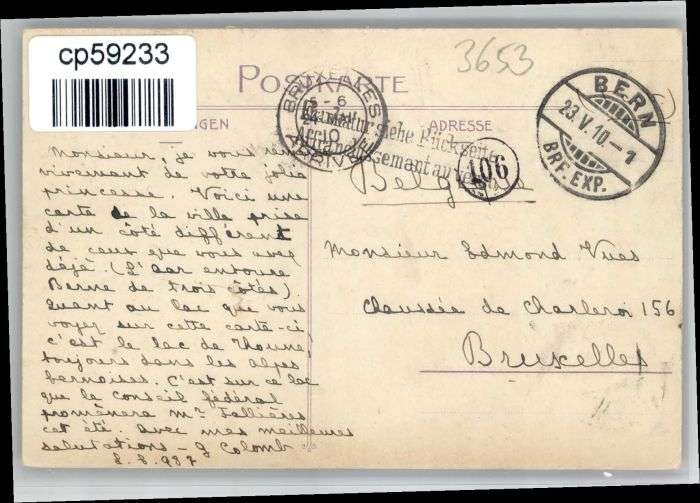 cp59233
3653
POSTKARTE
ADRESSE
BRUXELLES
ARRIVÉE
10
Frankatur siehe Rückseite
Affranchissement au verso
106
BERN
23.V.10.-1
BRF. EXP.
Belgique
Monsieur, je vous rem
vivement de votre jolie
princesse. Voici une
carte de la ville prise
d'un côté différent
de ceux que vous avez
déjà. (L'Aar entoure
Berne de trois côtés)
Quant au lac que vous
voyez sur cette carte-ci,
c'est le lac de Thoune,
toujours dans les alpes
bernoises. C'est sur ce lac
que le Conseil fédéral
promènera Mr Fallières
cet été. Avec mes meilleures
salutations - G Colomb
S. S. 987
Monsieur Edmond Vues
Chaussée de Charleroi 156
Bruxelles